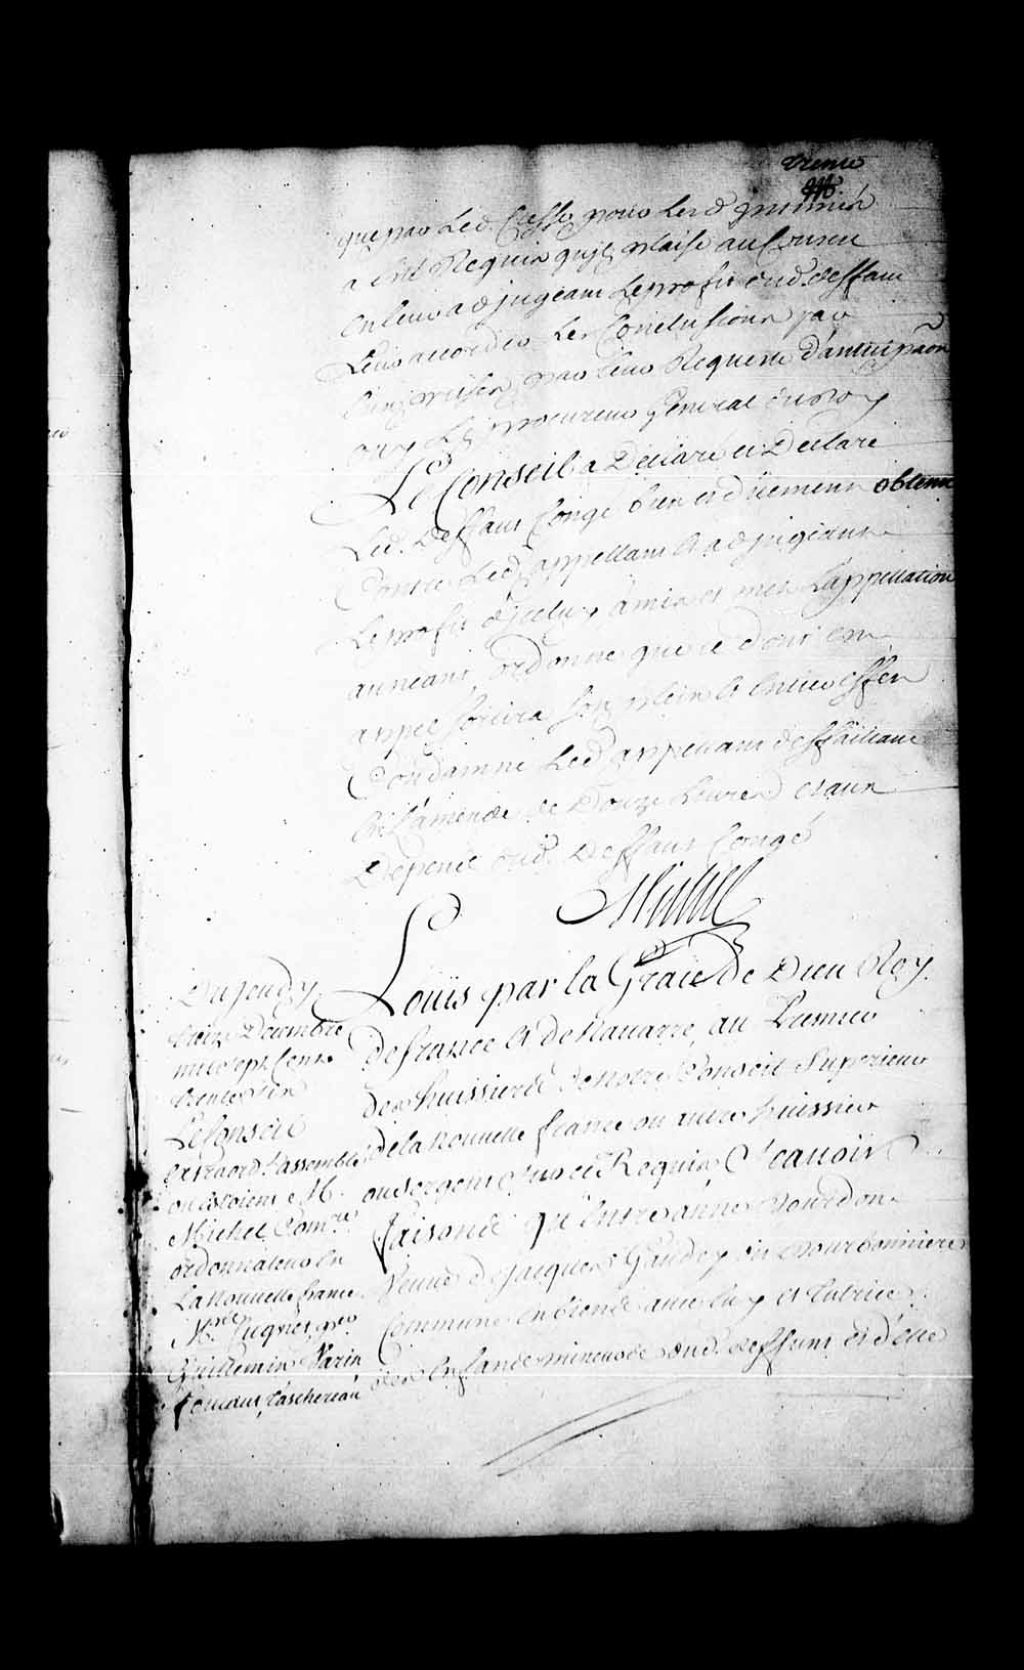 trente
que par Led. Cesse pour les d. intimés
a Esté Requis qu'il plaise au Conseil
en leur adjugeant Le profit dud. deffaut
Leur accorder Les Conclusions par
prises par leur Requeste d'anticipaon
ouy Le procureur General du Roy
Le Conseil a Déclaré et Declare
Led. Deffaut Congé bien et düement obtenu
Contre Led. appellant Et adjugeant
Le profit d'jceluy a mis et met L'appellation
au neant ordonne que ce dont est
appel sortira son plein Et entier effet
Condamne Led. appellant deffaillant
En L'amende de Douze Livres et aux
Dépens dud. Deffaut Congé
Michel
Du Jeudy
trois Décembre
mil sept Cent
trente six
Le Conseil
Extraord. assemblé
ou Estoient M.
Michel Comre
ordonnateur En
La Nouvelle france
Mrs Cugnet
Guillemin Varin
Taschereau
Loüis par la Grace de Dieu Roy
de france Et de Navarre, au Premier
des huissiers de notre Conseil Superieur
de la nouvelle france ou autre huissier
ou sergent sur ce Requis Scavoir
faisons qu'Entre anne Bourdon
Veuve de Jacques Gaudry dit Bourbonniere
Commune en biens avec luy et tutrice
des Enfants mineurs dud. deffunt Et d'elle